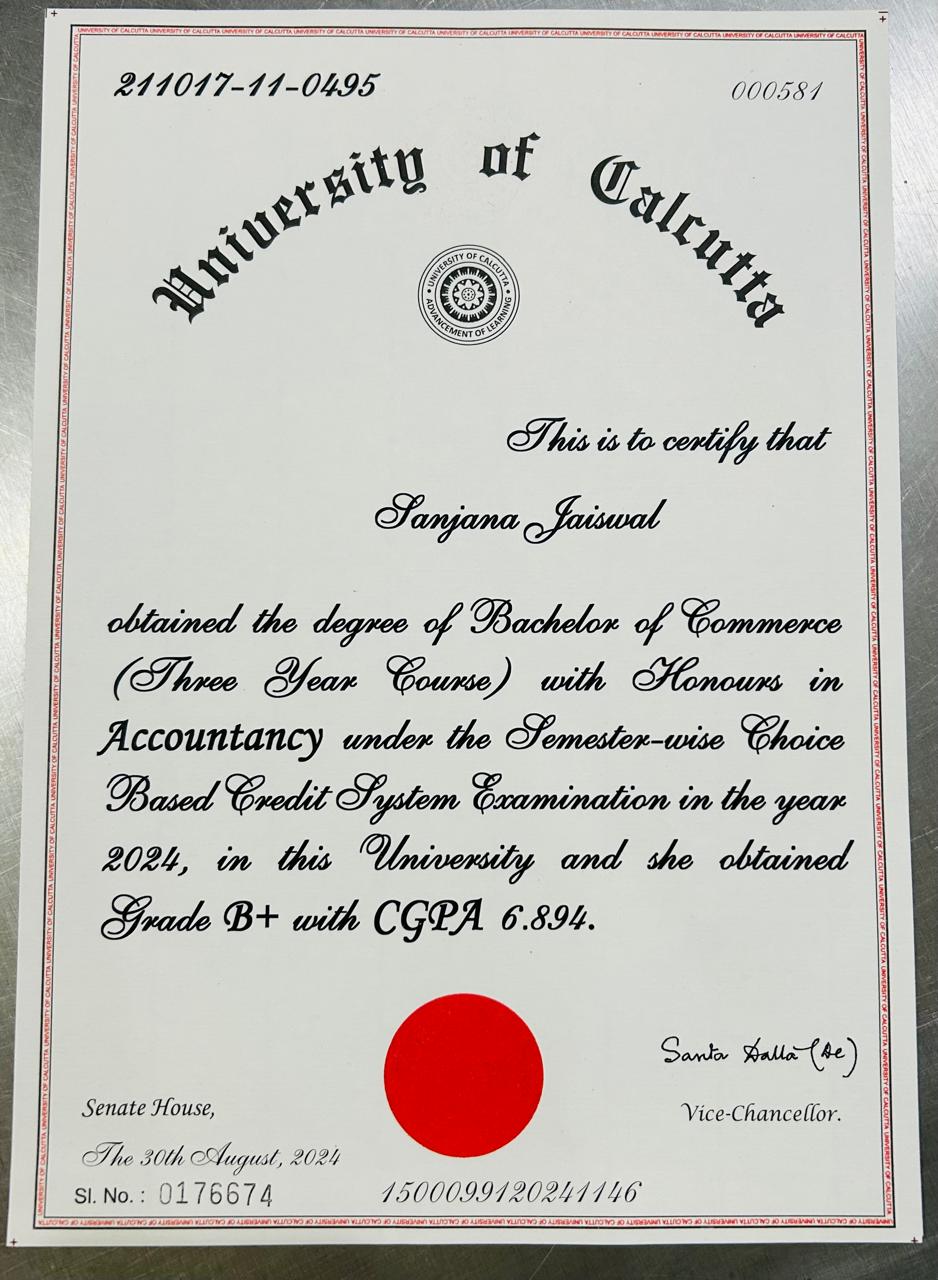 211017-11-0495
000581
University of Calcutta
UNIVERSITY OF CALCUTTA
ADVANCEMENT OF LEARNING
This is to certify that
Sanjana Jaiswal
obtained the degree of Bachelor of Commerce
(Three Year Course) with Honours in
Accountancy under the Semester-wise Choice
Based Credit System Examination in the year
2024, in this University and she obtained
Grade B+ with CGPA 6.894.
Santa Datta (De)
Senate House,
Vice-Chancellor.
The 30th August, 2024
Sl. No. : 0176674
1500099120241146